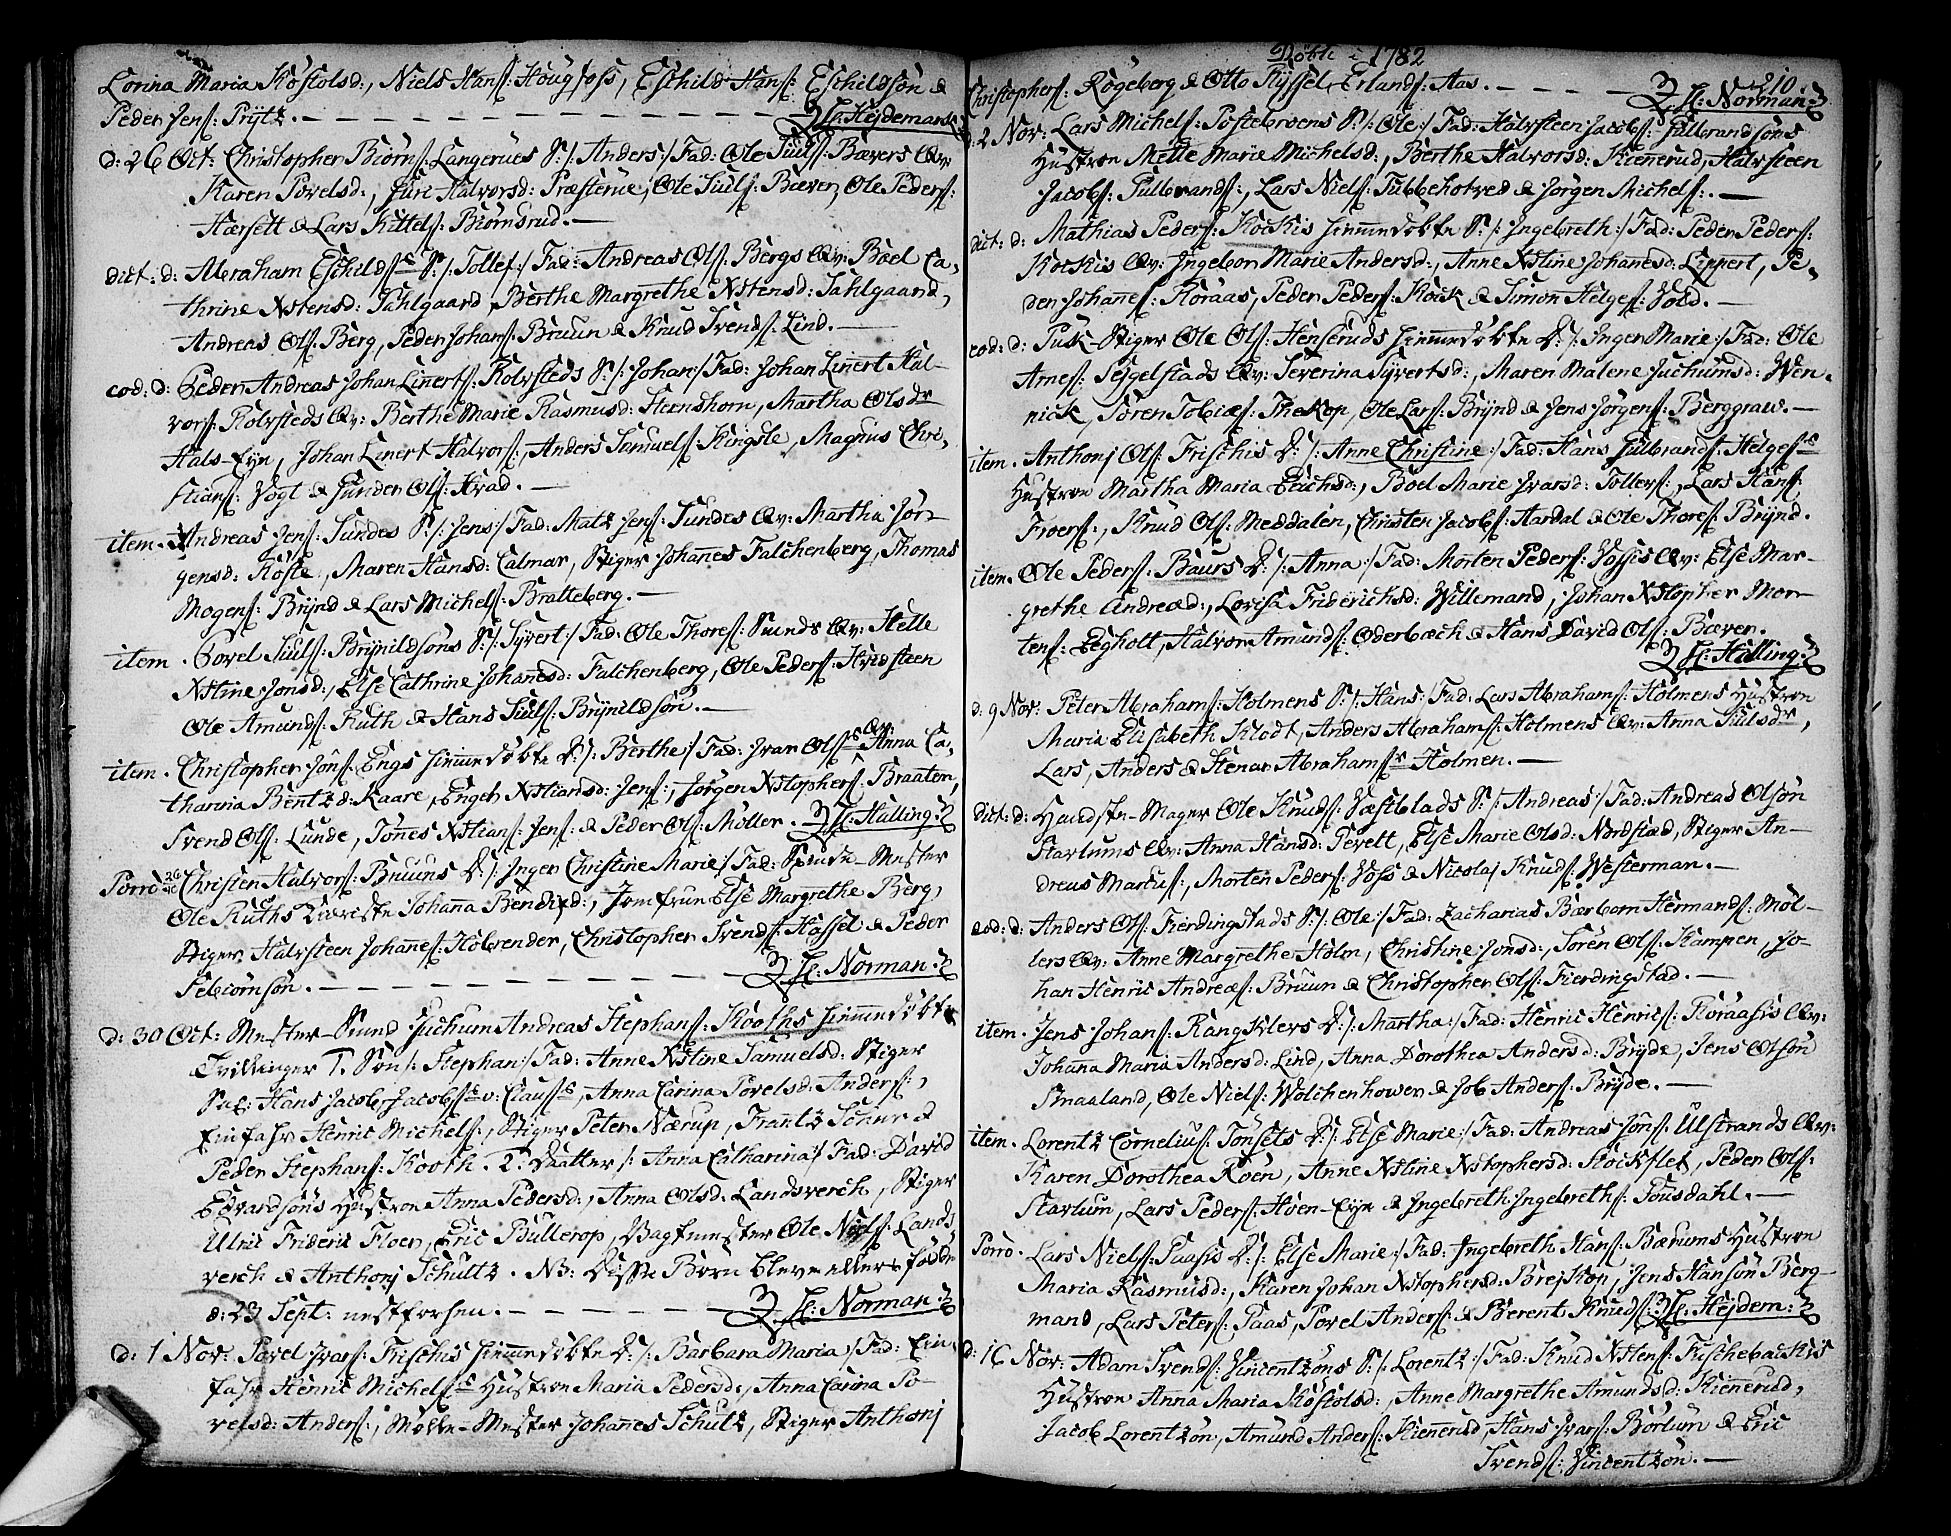 Lovina Maria Kostolsd:, Niels Hans: Hougfoss, Eschild Hans: Eschildsön &
Peder Jens: Prÿtz. — — — — H: Heÿdeman:
d: 26 Oct: Christopher Biörns: Langerues S: /: Anders :/ Fad: Ole Juuls: Bævers Qv:
Karen Povelsd:, Juri Halvorsd: Præsterue, Ole Juuls: Bæver, Ole Peders:
Hærsett & Lars Kittels: Biörndrud. —
dict: d: Abraham Eschilds: S: /: Tollef :/ Fad: Andreas Ols: Bergs Qv: Boel Ca,
thrine Xstensd: Dahlgaard, Berthe Margrethe Xstensd: Dahlgaard,
Andreas Ols: Berg, Peder Johans: Bruun & Knud Svends: Lind. —
eod: d: Peder Andreas Johan Linerts: Rolvsteds S: /: Johan :/ Fad: Johan Linert Hal-
vors: Rolvsteds Qv: Berthe Marie Rasmusd: Hernshorn, Martha Olsdr
Hals-Eÿn, Johan Linert Halvors:, Anders Samuels: Kingsle, Magnus Chri,
stians: Vogt & Gunder Ols: Hvad. —
item. Andreas Jens: Sundes S: /: Jens :/ Fad: Matz Jens: Sundes Qv: Martha Jör-
gensd: Röste, Maren Hansd: Calmar, Stiger Johanes Falchenberg, Thomas
Mogens: Brÿnd & Lars Michels: Bratteberg. —
item. Povel Juuls: Brÿnildsöns S: /: Sÿvert :/ Fad: Ole Thores: Sunds Qv: Helle
Xstine Jonsd:, Else Cathrine Johanesd: Falchenberg, Ole Peders: Hvidsteen
Ole Amunds: Ruth & Hans Juuls: Brÿnildsön. —
item. Christopher Jöns: Engs hiemmedöbte D: /: Berthe :/ Fad: Ivar Ols: Qv: Anna Ca,
tharina Bentzd: Kaare, Engeb Xstiansd: Jens:, Jörgen Xstophers: Braaten,
Svend Ols: Lunde, Tönes Xstians: Jens: & Peder Ols: Möller. H: Halling:
Porro 26 Christen Halvors: Bruuns D: /: Inger Christine Marie :/ Fad: Mester
Ole Ruths Johana Bendixd:, Jomfrue Else Margrethe Berg,
Stiger Halvsteen Johanes: Hobrender, Christopher Svends: Hassel & Peder
Sebiörnsön. — — — — H: Norman:
d: 30 Oct: Mester-Svend Juchum Andreas Stephans: Kooths hiemmedöbte
Tvillinger 1. Sön /: Stephan :/ Fad: Anne Xstine Samuelsd: Stiger
Sal: Hans Jacob Jacobs: v: Clauss:, Anna Carina Povelsd: Anders:,
Einfahr Henric Michels:, Stiger Peter Nærup, Frantz Schur &
Peder Stephans: Kooth. 2. Daatter /: Anna Catharina :/ Fad: David
Edvardsöns Hustroe Anna Pedersd:, Anna Olsd: Landsverch, Stiger
Ulric Frideric Floer, Eric Bullerop, Vagtmester Ole Niels: Lands,
verch & Anthonj Schultz. NB: Disse Börn bleve ellers födde
d: 23 Sept: nestforhen. — — — — H: Norman:
d: 1 Nov: Povel Ivars: Frischis hiemmedöbte D: /: Barbara Maria :/ Fad: Ein,
fahr Henric Michels: Hustroe Maria Pedersd:, Anna Carina Po-
velsd: Anders:, Mester Johanes Schultz, Stiger Anthonj
Döbte i 1782
210.
Christophers: Rögeberg & Otto Rÿssel, Erlands: Aas. — — — H: Norman:
d: 2 Nov: Lars Michels: Postebroens S: /: Ole :/ Fad: Halvsteen Jacobs: Gulbrandsöns
Hustroe Mette Marie Michelsd:, Berthe Halvorsd: Kienerud, Halvsteen
Jacobs: Gulbrands:, Lars Niels: Tubbehotved & Jörgen Michels:. —
dict: d: Mathias Peders: Kockis hiemmedöbte S: /: Ingebreth :/ Fad: Peder Peders:
Kockis Qv: Ingebor Marie Andersd:, Anne Xstine Johanesd: Lippert, Pe,
der Johanes: Koraas, Peder Peders: Kock & Simon Helges: Vold. —
eod: d: Puk-Stiger Ole Ols: Henseruds hiemmedöbte D: /: Inger Marie :/ Fad: Ole
Arnes: Tegelstads Qv: Severina Sÿvertsd:, Maren Malene Juchumsd: Wen-
nick, Sören Tobiæs: Thekop, Ole Lars: Brÿnd & Jens Jörgens: Berggrav. —
item. Anthonj Ols: Frischis D: /: Anne Christine :/ Fad: Hans Gulbrands: Helges:
Hustroe Martha Maria Erichsd:, Boel Marie Ivarsd: Tollers:, Lars Hans:
Froers:, Knud Ols: Meddalen, Christen Jacobs: Aardal & Ole Thores: Brÿnd.
item. Ole Peders: Baurs D: /: Anna :/ Fad: Morten Peders: Vossis Qv: Else Mar-
grethe Andreæd:, Lovisa Friderichsd: Willemand, Johan Xstopher Mor-
tens: Eegholt, Halvor Amunds: Oderbæch & Hans David Ols: Bæver.
H: Halling:
d: 9 Nov: Peter Abrahams: Holmens S: /: Hans :/ Fad: Lars Abrahams: Holmens Hustroe
Maria Elisabeth Klodt, Anders Abrahams: Holmens Qv: Anna Juulsdr,
Lars, Anders & Stenar Abrahams: Holmen. —
dict: d: Handske-Mager Ole Knuds: Væstblads S: /: Andreas :/ Fad: Andreas Olsön
Starlums Qv: Anna Hansd: Tevett, Else Marie Olsd: Nordstad, Stiger An-
dreas Marcus:, Morten Peders: Voss & Nicolaj Knuds: Westerman. —
eod: d: Anders Ols: Fierdingstads S: /: Ole :/ Fad: Zacharias Bærbom Hermands: Möl-
lers Qv: Anne Margrethe Holm, Christine Jonsd:, Sören Ols: Kampen, Jo-
han Henric Andreæs: Bruun & Christopher Ols: Fierdingstad. —
item. Jens Johans: Rangklevs D: /: Martha :/ Fad: Henric Henrics: Roraasis Qv:
Johana Maria Andersd: Lind, Anna Dorothea Andersd: Brÿde, Jens Olsön
Smaaland, Ole Niels: Wolchenhower & Job Anders: Brÿde. —
item. Lorentz Cornelius: Tonsets D: /: Else Marie :/ Fad: Andreas Jöns: Ulstrands Qv:
Karen Dorothea Roen, Anne Xstine Xstophersd: Stockflet, Peder Ols:
Starlum, Lars Peders: Hoen-Eÿe & Ingebreth Ingebreths: Tousdahl. —
Porro. Lars Niels: Paasis D: /: Else Marie :/ Fad: Ingebreth Hans: Bærums Hustroe
Maria Rasmusd:, Karen Johan Xstophersd: Brejkop, Jens Hansön Berg-
mand, Lars Peters: Paas, Povel Anders: & Berent Knuds: H: Heÿdem:
d: 16 Nov: Adam Svends: Vincentzöns S: /: Lorentz :/ Fad: Knud Xstens: Fischebackis
Hustroe Anna Maria Kostolsd:, Anne Margrethe Amundsd: Kienerud,
Jacob Lorentzön, Amund Anders: Kienerud, Hans Ivars: Borlum & Eric
Svends: Vincentzön. —